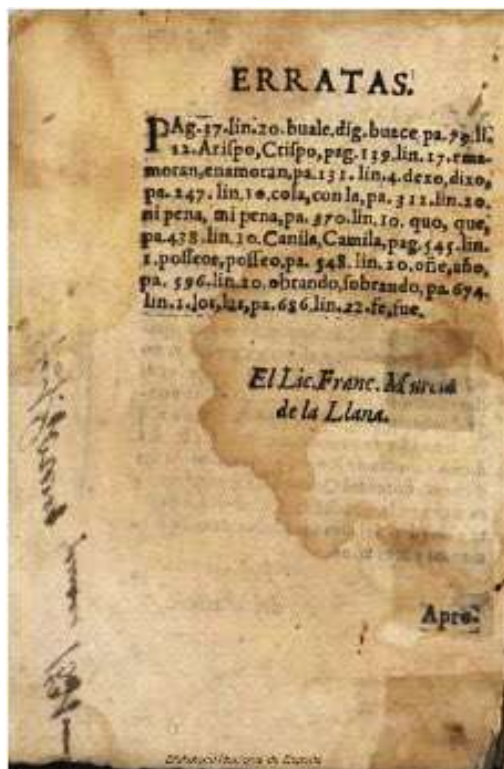 ERRATAS.
PAg.37.lin.20.buale,dig.buace pa.79.li.
12.Arispo,Crispo,pag.139.lin.17.ena-
moran,enamoran,pa.131.lin.4.dexo,dixo,
pa.247.lin.10.cola,con la,pa.311.lin.20.
mi pena, mi pena,pa.370.lin.10. quo, que,
pa.438.lin.10.Canila,Camila,pag.545.lin.
1.posseos,posseo,pa.548.lin.20.oñe,uño,
pa.596.lin.20.obrando,sobrando,pa.674.
lin.1.los,las,pa.686.lin.22.fe,fue.
El Lic.Franc.Murcia
de la Llana.
Apro-
Biblioteca Nacional de España